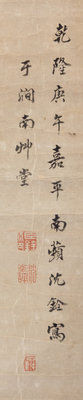 乾隆庚午嘉平南蘋沈銓寫
于澗南艸堂